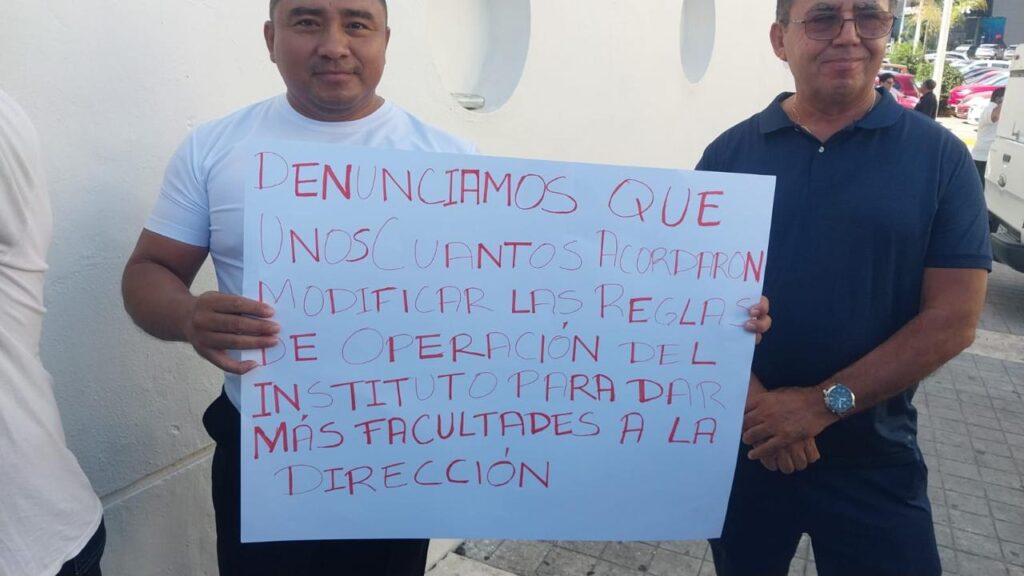 DENUNCIAMOS QUE
UNOS CUANTOS ACORDARON
MODIFICAR LAS REGLAS
DE OPERACIÓN DEL
INSTITUTO PARA DAR
MÁS FACULTADES A LA
DIRECCIÓN